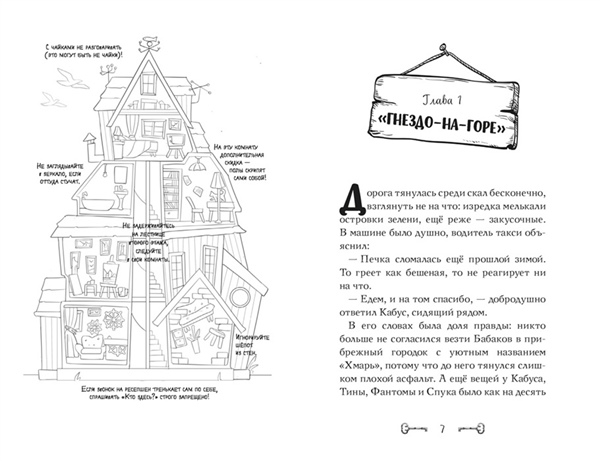 С ЧАЙКАМИ НЕ РАЗГОВАРИВАТЬ
(ЭТО МОГУТ БЫТЬ НЕ ЧАЙКИ)!
НА ЭТУ КОМНАТУ
ДОПОЛНИТЕЛЬНАЯ
СКИДКА —
ПОЛЫ СКРИПЯТ
САМИ СОБОЙ!
НЕ ЗАГЛЯДЫВАЙТЕ
В ЗЕРКАЛО, ЕСЛИ
ОТТУДА СТУЧАТ.
НЕ ЗАДЕРЖИВАЙТЕСЬ
НА ЛЕСТНИЦЕ
ВТОРОГО ЭТАЖА,
СЛЕДУЙТЕ
В СВОИ КОМНАТЫ.
ИГНОРИРУЙТЕ
ШЁПОТ
ИЗ СТЕН.
ЕСЛИ ЗВОНОК НА РЕСЕПШЕН ТРЕНЬКАЕТ САМ ПО СЕБЕ,
СПРАШИВАТЬ «КТО ЗДЕСЬ?» СТРОГО ЗАПРЕЩЕНО!
Глава 1
«ГНЕЗДО-НА-ГОРЕ»
Дорога тянулась среди скал бесконечно,
взглянуть не на что: изредка мелькали
островки зелени, ещё реже — закусочные.
В машине было душно, водитель такси объ-
яснил:
— Печка сломалась ещё прошлой зимой.
То греет как бешеная, то не реагирует ни
на что.
— Едем, и на том спасибо, — добродушно
ответил Кабус, сидящий рядом.
В его словах была доля правды: никто
больше не согласился везти Бабаков в при-
брежный городок с уютным названием
«Хмарь», потому что до него тянулся слиш-
ком плохой асфальт. А ещё вещей у Кабуса,
Тины, Фантомы и Спука было как на десять
7